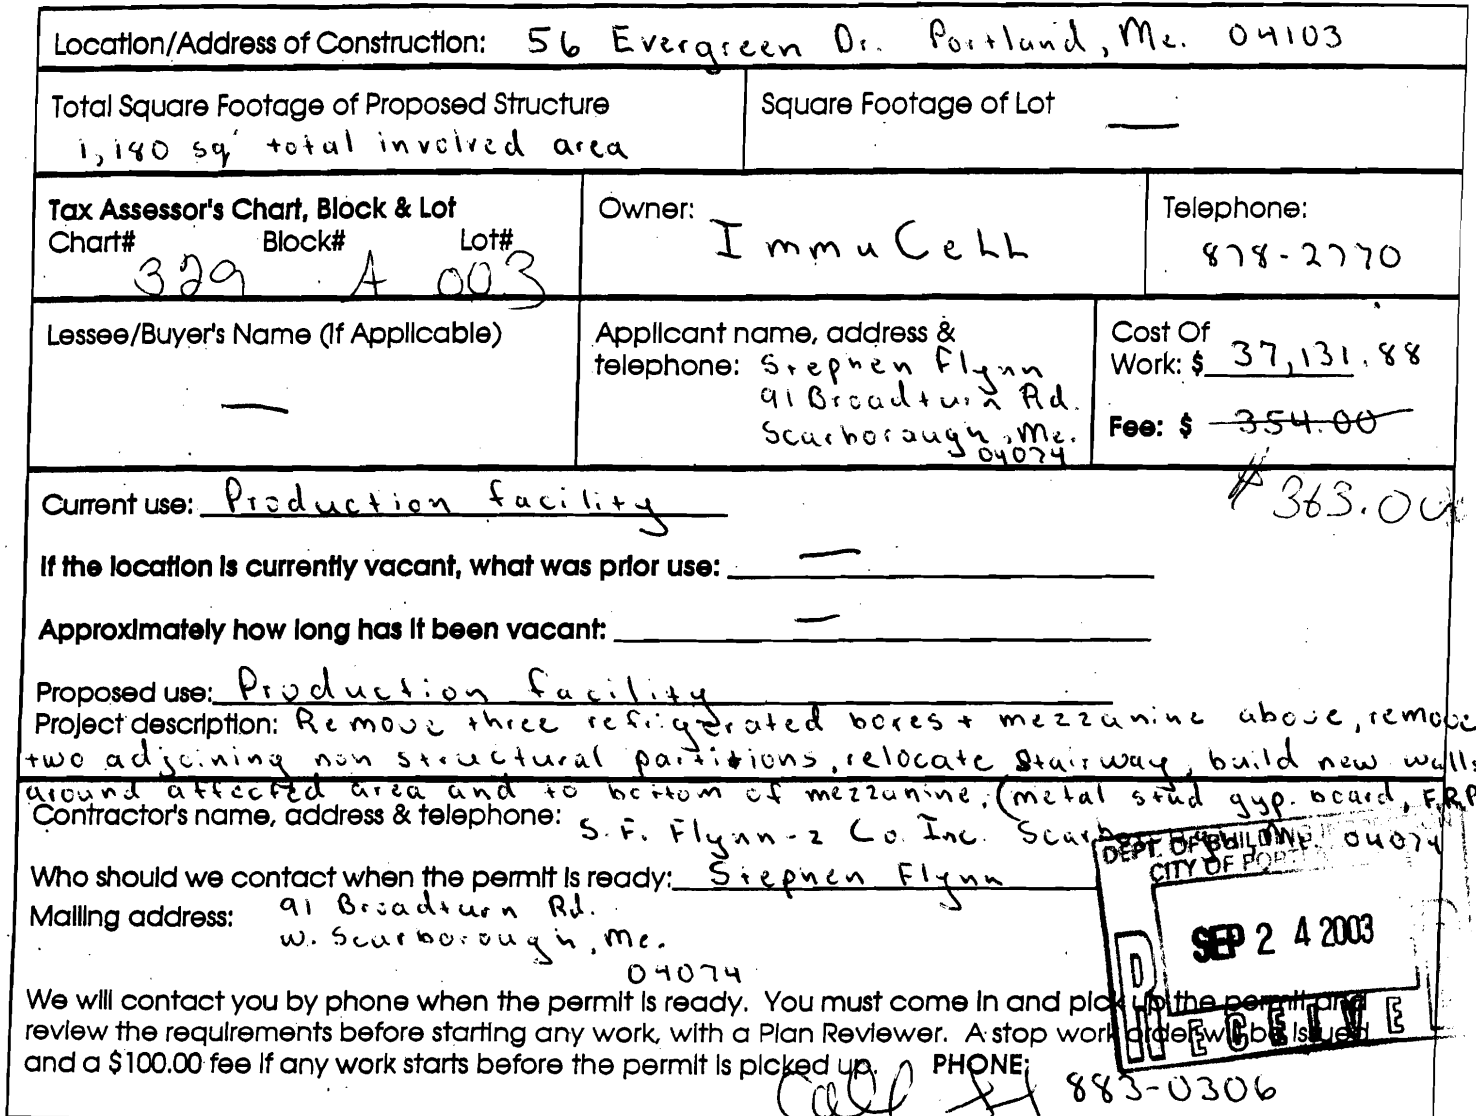 Location/Address of Construction: 56 Evergreen Dr. Portland, Me. 04103
Total Square Footage of Proposed Structure
1,180 sq' total involved area
Square Footage of Lot —
Tax Assessor's Chart, Block & Lot
Chart# Block# Lot#
329 A 003
Owner:
ImmuCeLL
Telephone:
878-2770
Lessee/Buyer's Name (If Applicable)
—
Applicant name, address &
telephone: Stephen Flynn
91 Broadturn Rd.
Scarborough, Me.
04074
Cost Of
Work: $ 37,131.88
Fee: $ 354.00
$363.00
Current use: Production facility
If the location is currently vacant, what was prior use: —
Approximately how long has it been vacant: —
Proposed use: Production facility
Project description: Remove three refrigerated boxes + mezzanine above, remove
two adjoining non structural partitions, relocate stairway, build new walls
around affected area and to bottom of mezzanine, (metal stud gyp. board, F.R.P
Contractor's name, address & telephone: S. F. Flynn-z Co Inc. Scarborough, Me. 04074
Who should we contact when the permit is ready: Stephen Flynn
Mailing address: 91 Broadturn Rd.
W. Scarborough, Me.
04074
DEPT. OF BUILDING
CITY OF
SEP 24 2003
RECEIVE
We will contact you by phone when the permit is ready. You must come in and pick up the permit and
review the requirements before starting any work, with a Plan Reviewer. A stop work order will be issued
and a $100.00 fee if any work starts before the permit is picked up. PHONE: 883-0306
Call